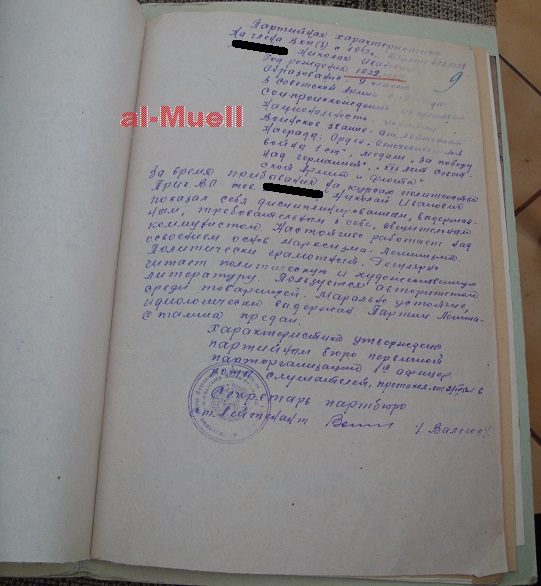 Партийная характеристика
На члена ВКП(б) с 1952
Николай Иванович
Год рождения 1922
Образование 9 классов
в Советской Армии с
Соцпроисхождение из крестьян
Национальность украинец
Воинское звание
Награды: Орден, Отечественная
война 1 ст", медали "За победу
над Германией", " лет Совет-
ской Армии и Флота"
За время прибывания на курсах политсостава
ПрикВО тов. Николай Иванович
показал себя дисциплинированным, выдержан-
ным, требовательным к себе, общительным
коммунистом. Настойчиво работает над
освоением основ марксизма-Ленинизма.
Политически грамотный. Регулярно
читает политическую и художественную
литературу. Пользуется авторитетом
среди товарищей. Марально устойчив,
идеологически выдержан. Партии Ленина-
Сталина предан.
Характеристика утверждена
партийным бюро первичной
парторганизации 1й офицер
роты слушателей, протокол
Секретарь партбюро
ст. лейтенант
9
al-Muell